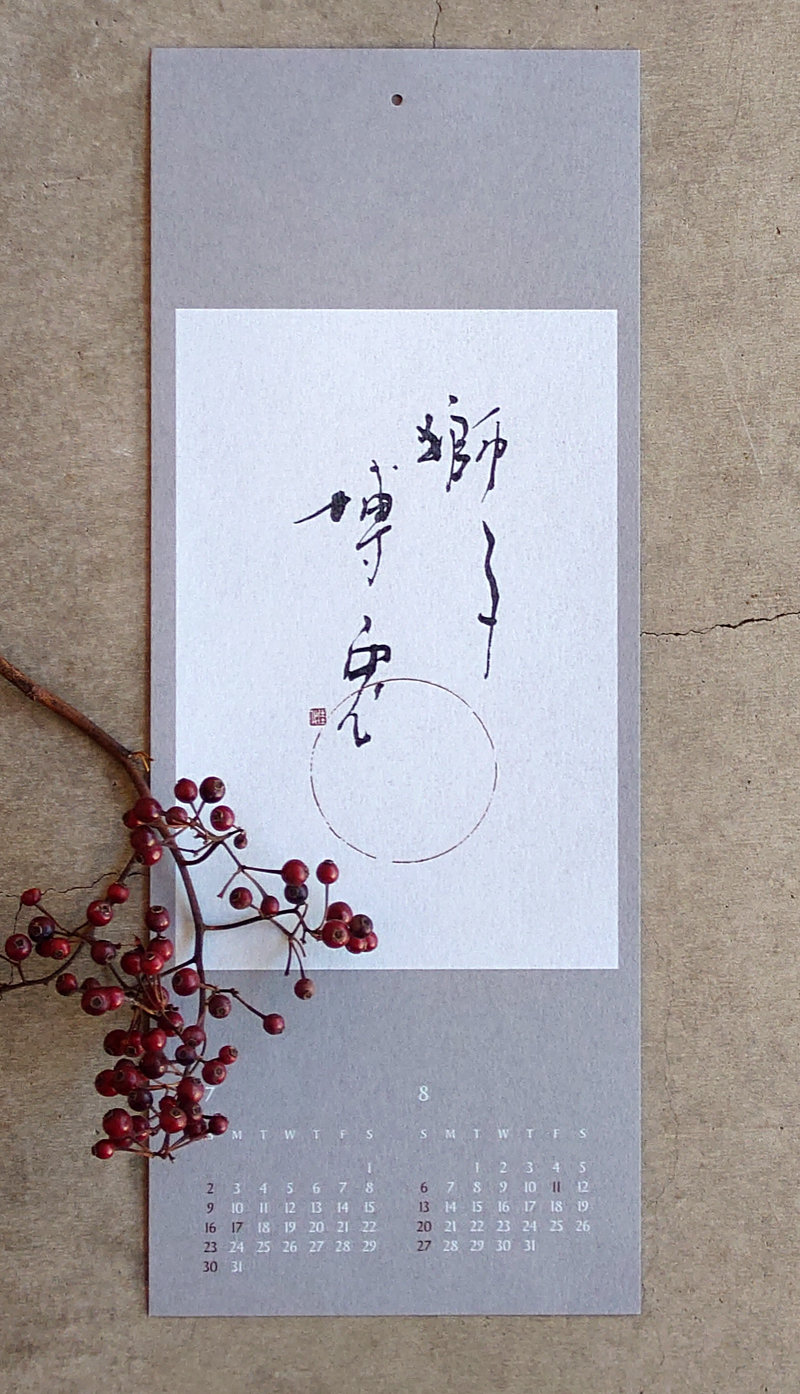 獅子
搏兎
7
M T W T F S
1
2 3 4 5 6 7 8
9 10 11 12 13 14 15
16 17 18 19 20 21 22
23 24 25 26 27 28 29
30 31
8
S M T W T F S
1 2 3 4 5
6 7 8 9 10 11 12
13 14 15 16 17 18 19
20 21 22 23 24 25 26
27 28 29 30 31